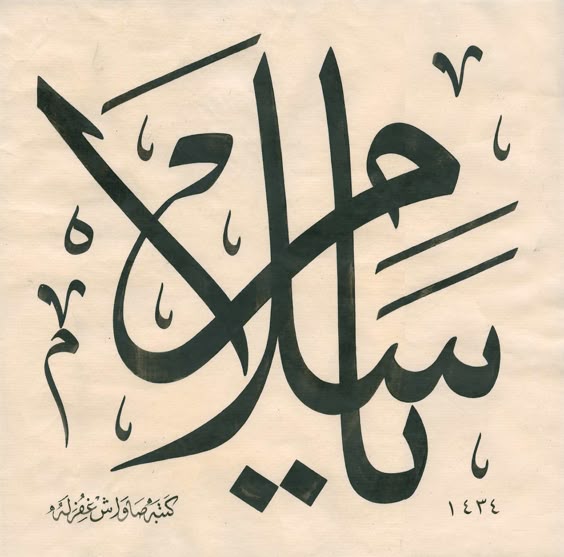 يا سلام
كتبه صاواش غفر له
١٤٣٤